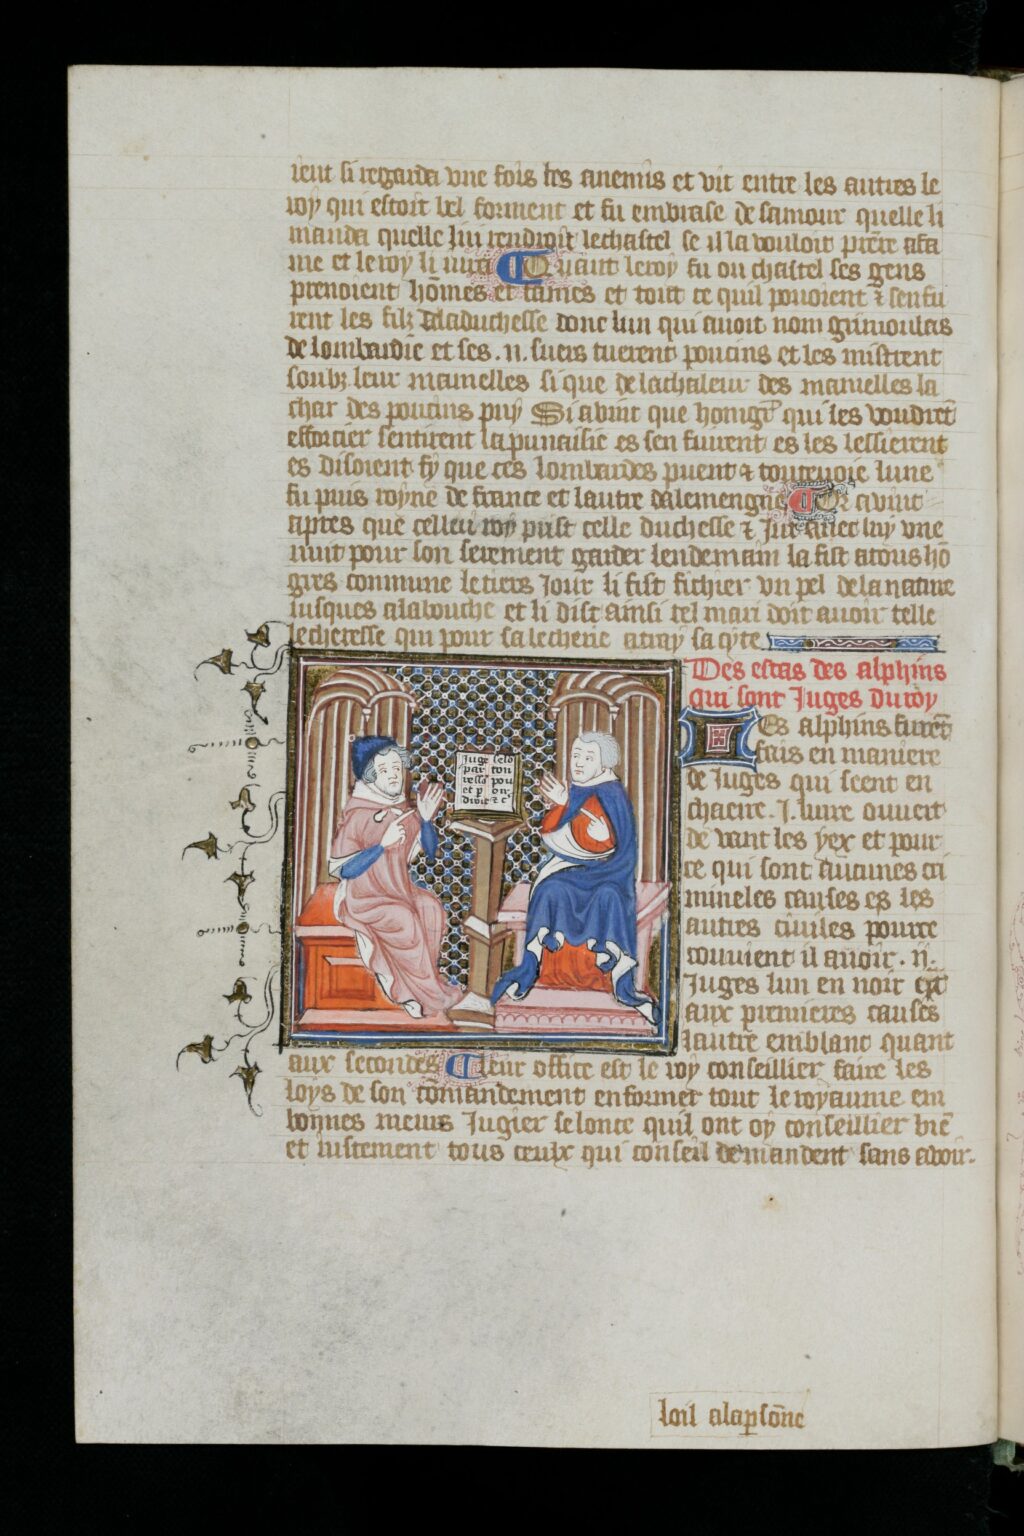 rent si regarda vne fois les anemis et vit entre les autres le
roy qui estoit bel forment et fu embrase de samour quelle li
manda quelle lui rendroit lechastel se il la vouloit prēre afa
me et le roy li iura Quant leroy fu ou chastel ses gens
prenoient hōmes et fames et tout ce quil pouoient ⁊ senfu
irent les filz daladuchesse donc lun qui auoit nom grimoulas
de lombardie et ses .ii. suers tuerent poucins et les mistrent
soubz leur mamelles si que de lachaleur des mamelles la
char des poucins puy Si avint que hongres qui les voudrēt
efforcier sentirent la punaisie es sen fuirent es les lessierent
es disoient fy que ces lombardes puent ⁊ toutenoie lune
fu puis royne de france et lautre dalemengne Or avint
apres que celleu roy prist celle duchesse ⁊ Jut auec luy vne
nuit pour son serement garder lendemain la fist atous hō
gres commune letiers Jour li fist fichier vn pel de la nature
iusques alabouche et li dist ainsi tel mari doit auoir telle
lecheresse qui pour sa lecherie a tray sa cyte
Des estas des alphins
qui sont Juges du roy
Les alphins furēt
fais en maniere
de Juges qui seent en
chaere .J. liure ouuert
de vant les yex et pour
ce qui sont aucunes cri
mineles causes es les
autres ciuiles pource
couuient il auoir .ii.
Juges lun en noir est
aux premieres causes
lautre emblanc quant
Juge selō
par con
resso pou
et p on
droit ⁊ c
aux secondes Leur office est le roy conseillier faire les
loys de son cōmandement enformer tout le royaume em
bonnes meurs Jugier selonc quil ont oy conseillier biē
et iustement tous ceulx qui conseil demandent sans avoir
loil alapersōne